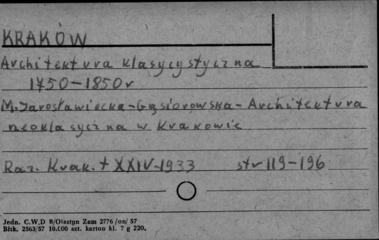 KRAKÓW
Architektura klasycystyczna
1750-1850r
M. Jarosławiecka-Gąsiorowska-Architektura
neoklasyczna w Krakowie
Rcz. Krak. t XXIV-1933 str 119-196
Jedn. C.W.D R/Olsztyn Zam 2776 /on/ 57
Bltk. 2563/57 10.000 szt. karton kl. 7 g 220.